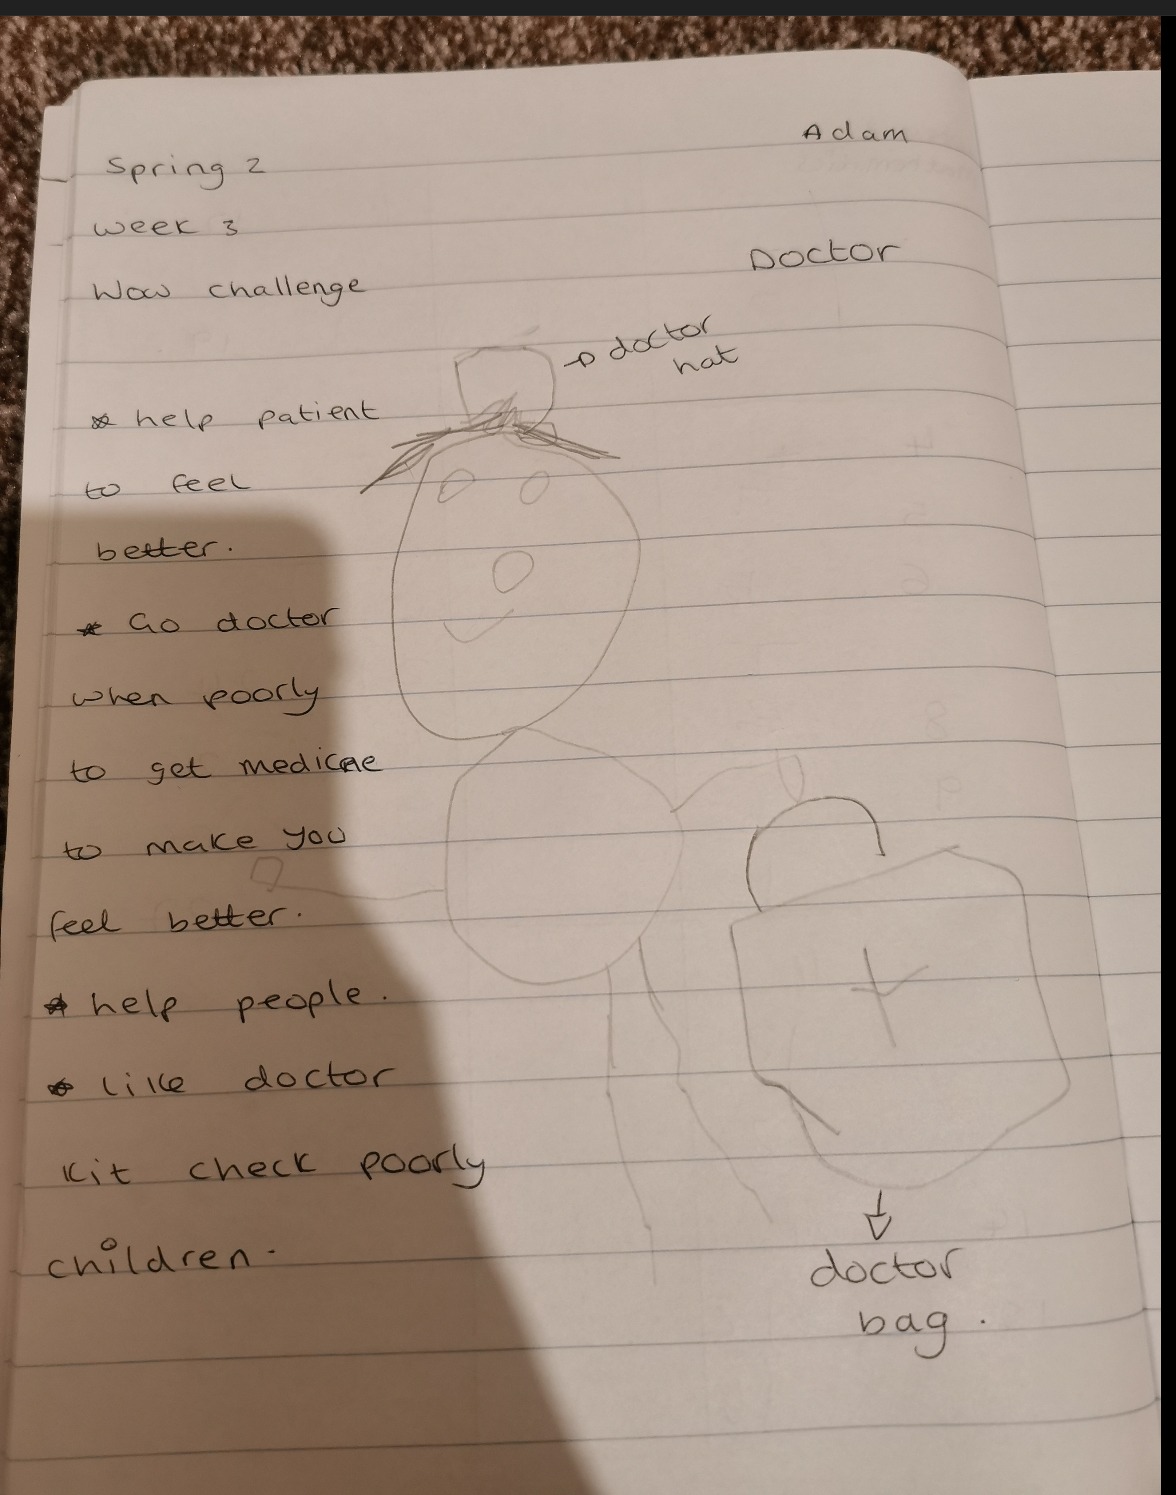 Adam
Spring 2
Week 3
Doctor
Wow challenge
→ doctor
hat
* help patient
to feel
better.
* Go doctor
when poorly
to get medicne
to make you
feel better.
* help people.
* like doctor
kit check poorly
children.
doctor
bag.